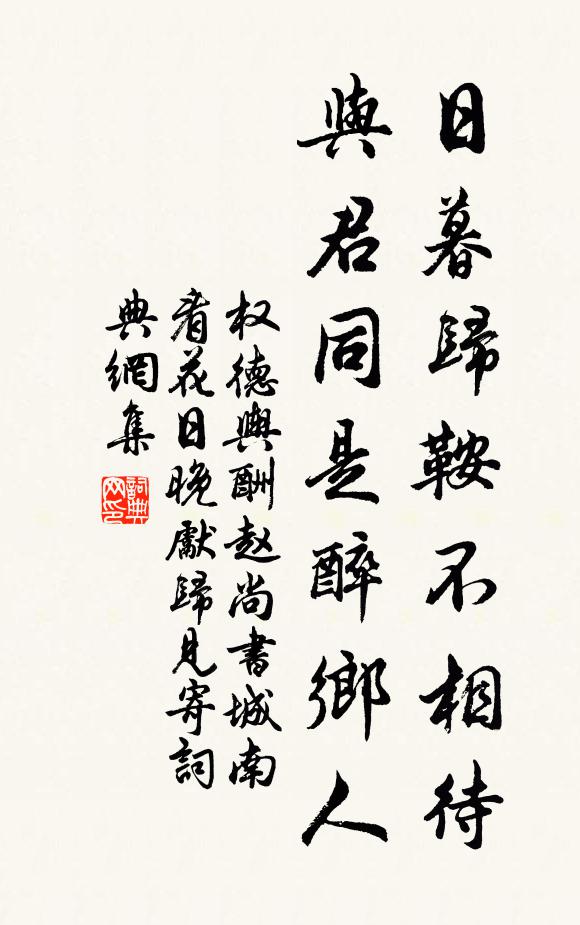 日暮歸鞍不相待
與君同是醉鄉人
权德輿酬赵尚書城南
看花日晚獻歸見寄詞
典網集
詞典
网印